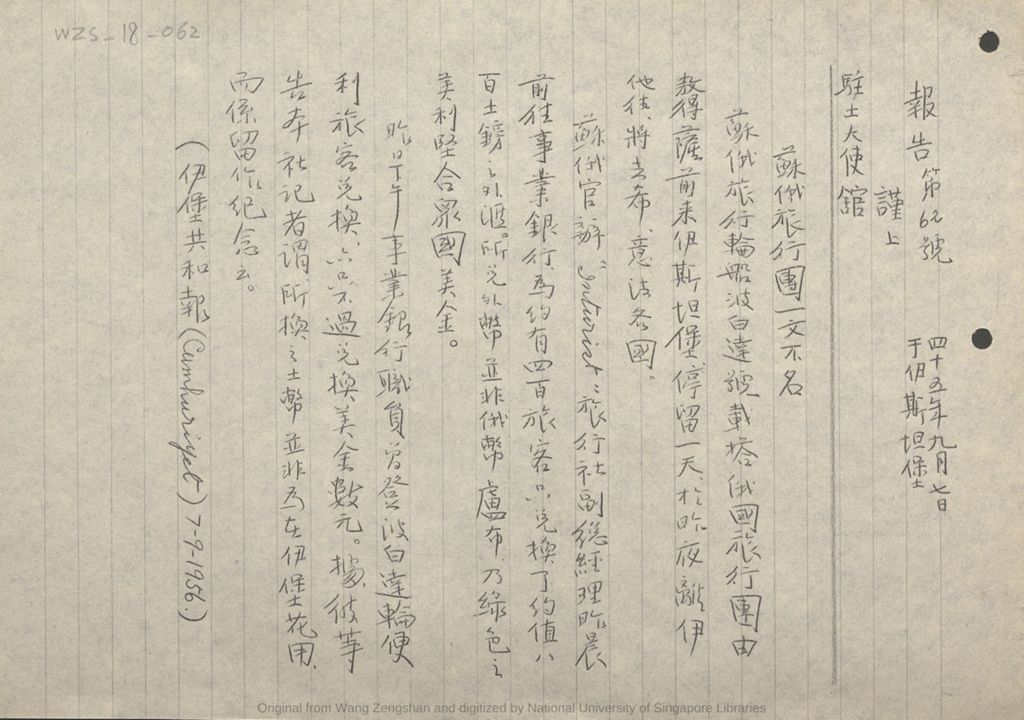 WZS-18-062
報告第62號
四十五年九月七日
于伊斯坦堡
謹上
駐土大使館
蘇俄旅行團一文不名
蘇俄旅行輪船波白達號載搭俄國旅行團由
敖得薩前来伊斯坦堡,停留一天,於昨夜離伊
他往,將去希、意法各國。
蘇俄官辦"Inturist"旅行社副總經理昨晨
前往事業銀行,為約有四百旅客只兑換了約值八
百土鎊之外滙。所兑外幣並非俄幣盧布,乃綠色之
美利堅合眾國美金。
昨日下午事業銀行職員曾登波白達輪便
利旅客兑換,亦只不過兑換美金數元。據彼等
告本社記者謂,所換之土幣並非為在伊堡花用,
而係留作紀念云。
(伊堡共和報(Cumhuriyet) 7-9-1956.)
Original from Wang Zengshan and digitized by National University of Singapore Libraries